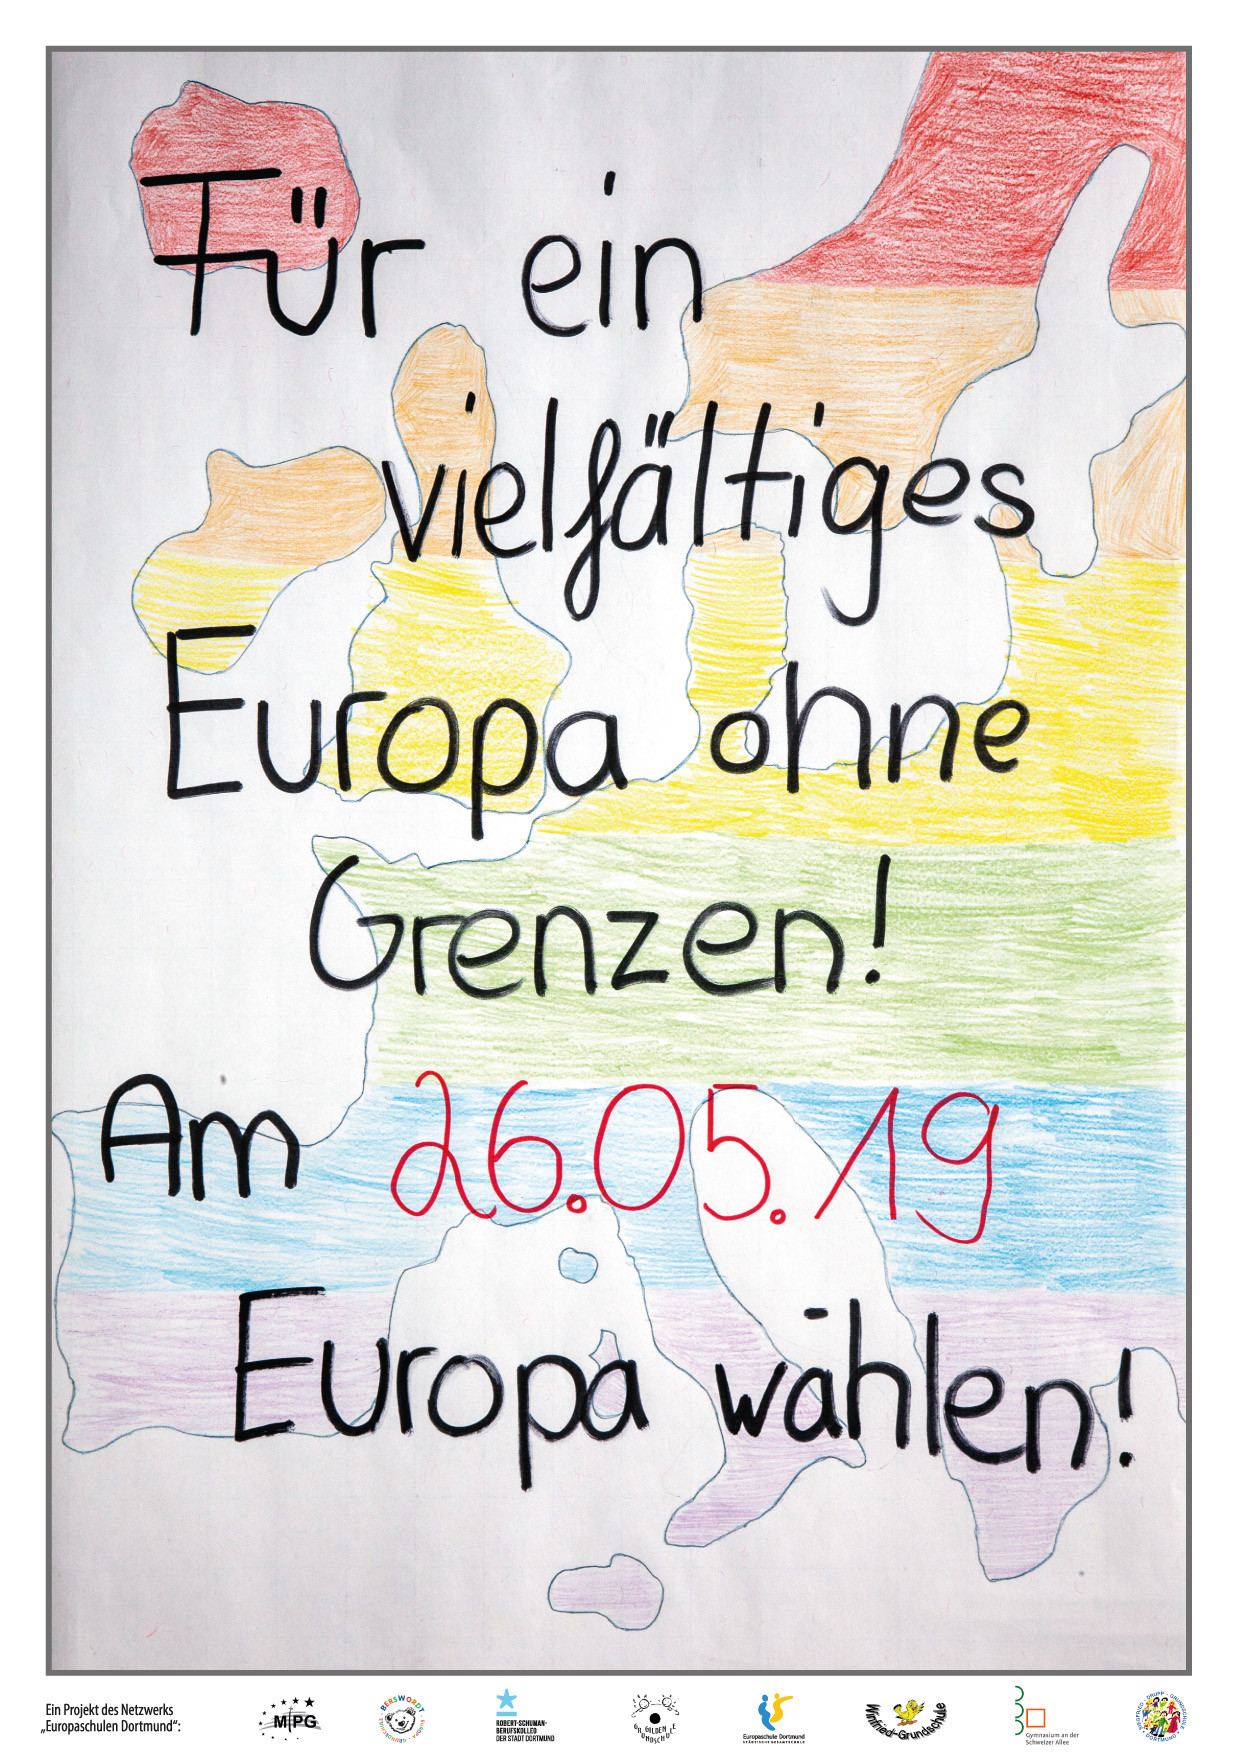 Für ein
vielfältiges
Europa ohne
Grenzen!
Am 26.05.19
Europa wählen!
Ein Projekt des Netzwerks
„Europaschulen Dortmund“:
MPG
BERSWORDT-EUROPA-GRUNDSCHULE
ROBERT-SCHUMAN-
BERUFSKOLLEG
DER STADT DORTMUND
GILDEN
GRUNDSCHULE
Europaschule Dortmund
STÄDTISCHE GESAMTSCHULE
Winfried-Grundschule
Gymnasium an der
Schweizer Allee
SIEGFRIED-DRUPP-GRUNDSCHULE
DORTMUND